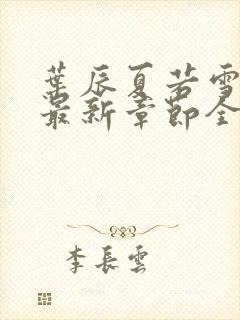 葉辰夏若雪
最新章節全
李長雲